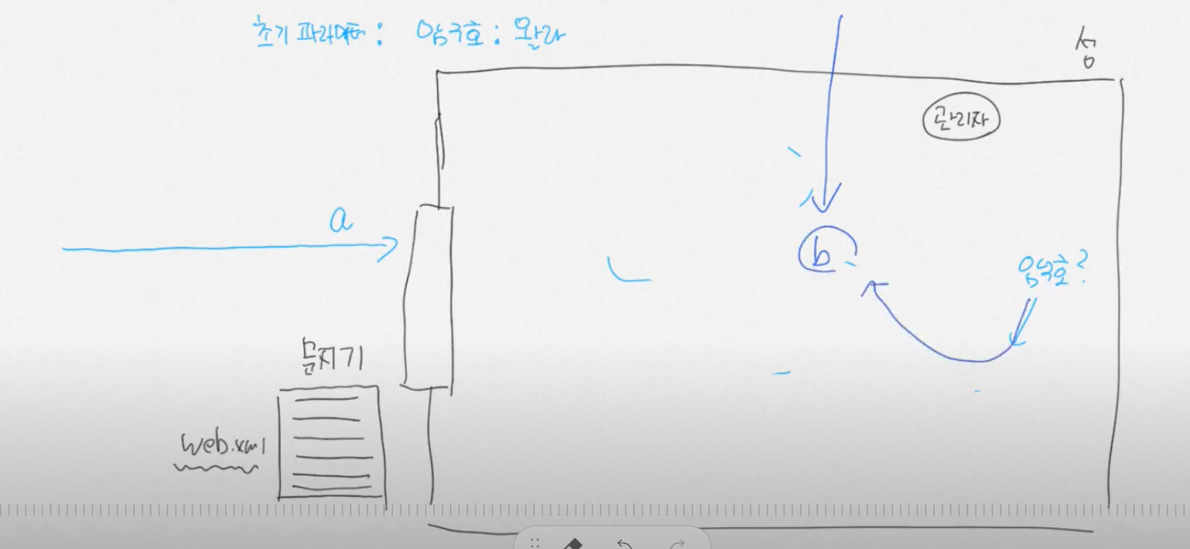 초기 파라메터 : 암구호 : 왈라
성
관리자
a
b
암구호?
문지기
web.xml